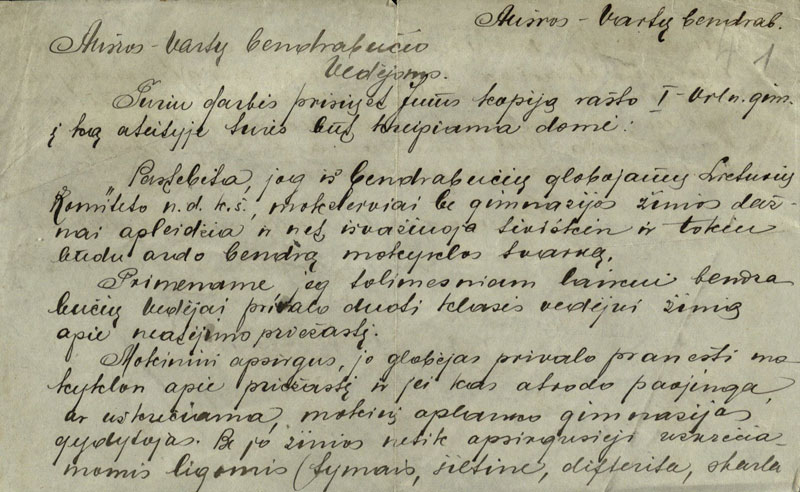 Aušros-Vartų bendrab.
4 1
Aušros-Vartų bendrabučio
Vedėjams.
Turiu garbės prisiųst Jums kopiją rašto I-Viln. gim.
į ką ateityje turės būt kreipiama domė:
Pastebėta, jog iš bendrabučių globojamų Lietuvių
Komiteto n.d.k.š., moksleiviai be gimnazijos žinios daž-
nai apleidžia ir net išvažiuoja tėviškėn ir tokiu
būdu ardo bendrą mokyklos tvarką.
Primename jog tolimesniam laikui bendra
bučių vedėjai privalo duoti klasės vedėjui žinią
apie neatėjimo priežastį.
Mokiniui apsirgus, jo globėjas privalo pranešti mo
kyklon apie priežastį ir jei kas atrodo pavojinga,
ar užkrečiama, mokinį aplanko gimnazijos
gydytojas. Be jo žinios netik apsirgusieji užkrečia-
momis ligomis (tymais, šiltine, difterita, skarla